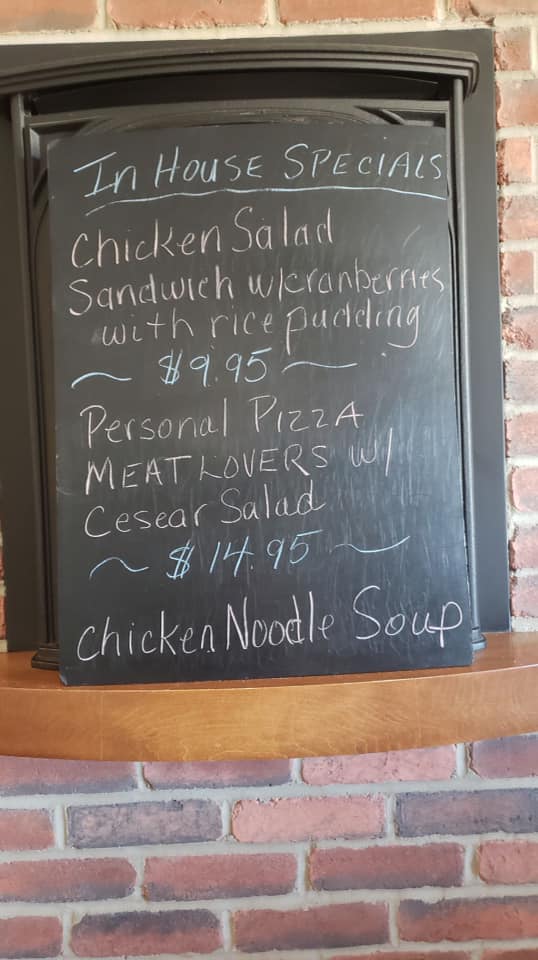 In House SPECIALS
Chicken Salad
Sandwich w/cranberries
with rice pudding
~ $9.95 ~
Personal PIZZA
MEAT LOVERS W/
Cesear Salad
~ $14.95 ~
Chicken Noodle Soup